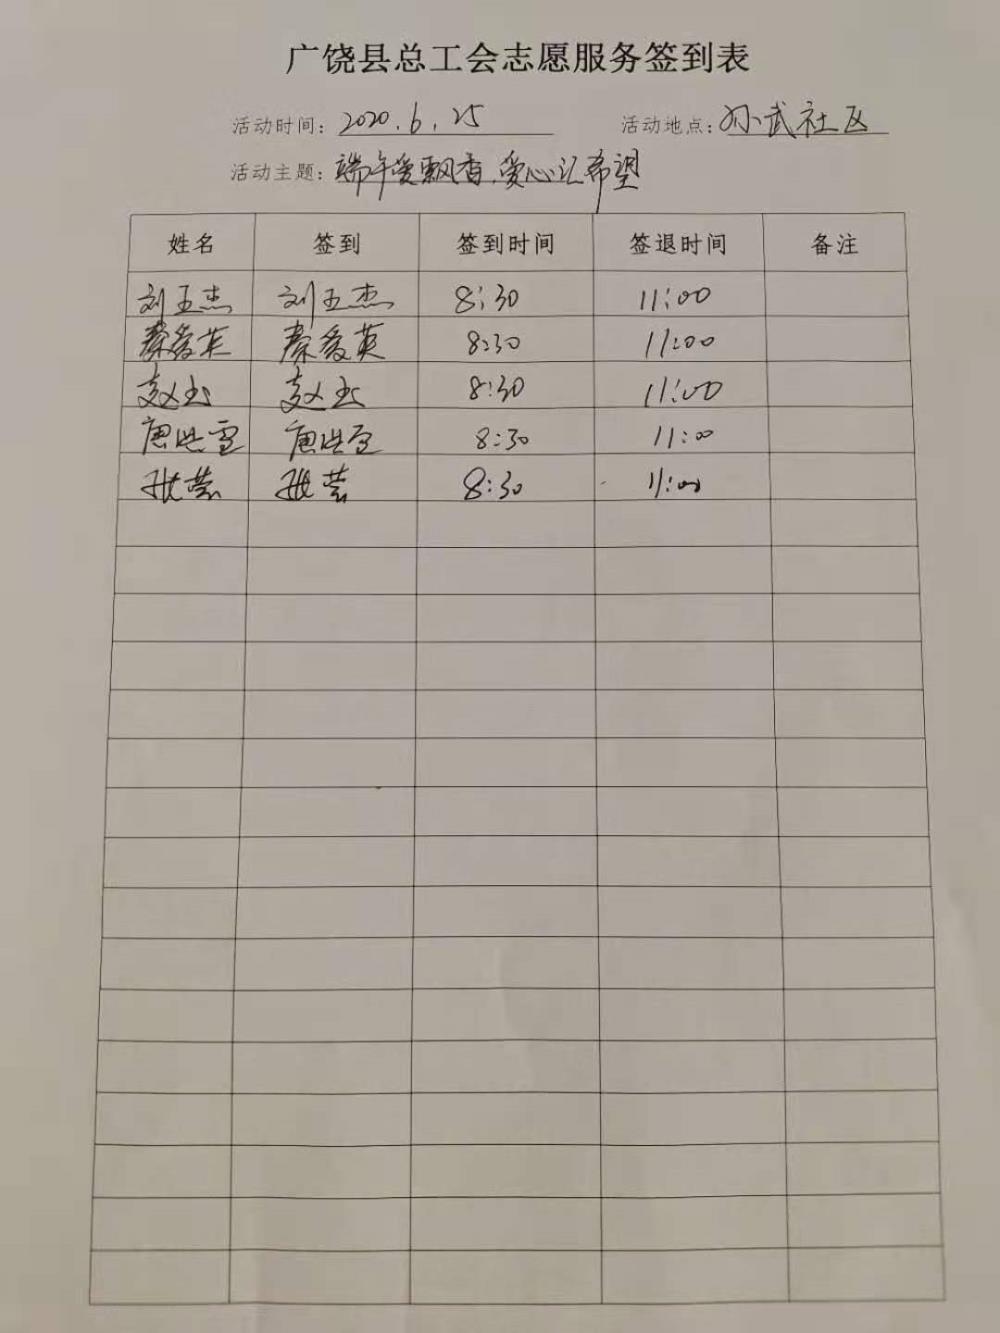 广饶县总工会志愿服务签到表
活动时间: 2020.6.25 活动地点: 孙武社区
活动主题: 端午爱飘香,爱心汇希望
姓名 签到 签到时间 签退时间 备注
刘玉杰 刘玉杰 8:30 11:00
秦爱英 秦爱英 8:30 11:00
赵玉 赵玉 8:30 11:00
唐洪雪 唐洪雪 8:30 11:00
张芸 张芸 8:30 11:00